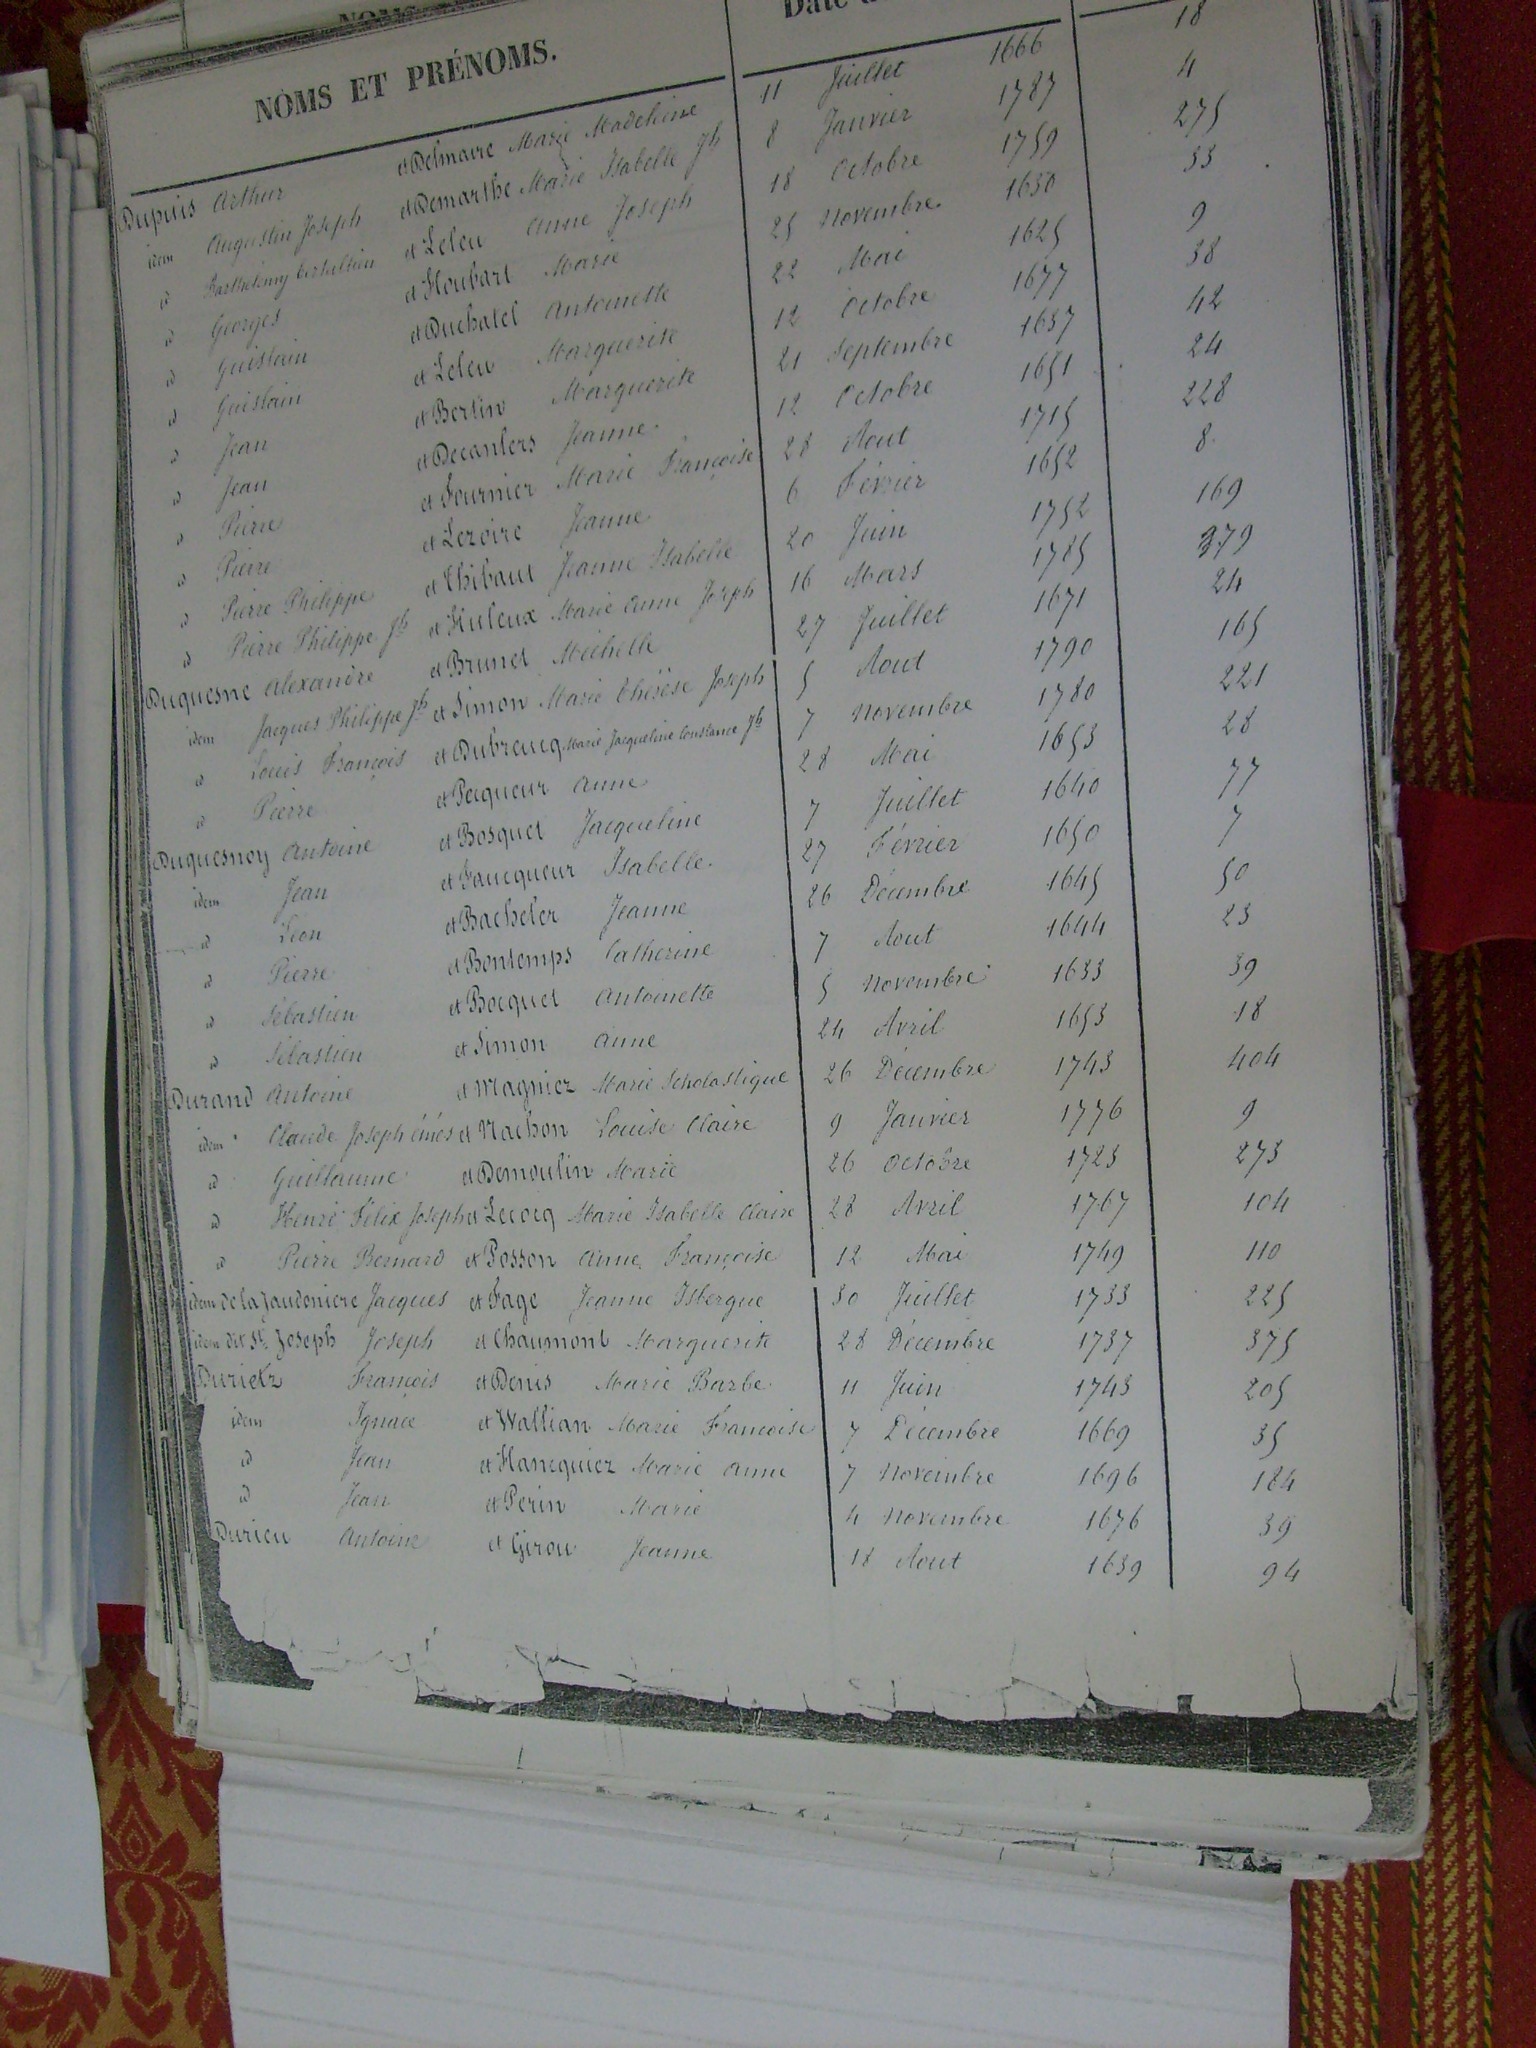 NOMS ET PRÉNOMS.
Dupuis Arthur et Delmaire Marie Madeleine 11 Juillet 1666 18
idem Augustin Joseph et Demarthe Marie Isabelle Jh 8 Janvier 1787 4
d Barthélemy et Leleu Anne Joseph 18 Octobre 1759 275
d Georges et Houbart Marie 25 Novembre 1630 33
d Guislain et Duchatel Antoinette 22 Mai 1625 9
d Guislain et Leleu Marguerite 12 Octobre 1677 38
d Jean et Bertin Marguerite 21 Septembre 1637 42
d Jean et Decanlers Jeanne 12 Octobre 1651 24
d Pierre et Fournier Marie Françoise 28 Aout 1715 228
d Pierre et Lezoire Jeanne 6 Février 1652 8
d Pierre Philippe et Thibaut Jeanne Isabelle 20 Juin 1752 169
d Pierre Philippe Jh et Huleux Marie Anne Joseph 16 Mars 1785 379
Duquesne Alexandre et Brunet Michelle 27 Juillet 1671 24
idem Jacques Philippe Jh et Simon Marie Thérèse Joseph 5 Aout 1790 165
d Louis François et Dubreucq Marie Jacqueline Constance Jh 7 Novembre 1780 221
d Pierre et Pecqueur Anne 28 Mai 1653 28
Duquesnoy Antoine et Bosquet Jacqueline 7 Juillet 1640 77
idem Jean et Faucqueur Isabelle 27 Février 1650 7
d Léon et Bacheler Jeanne 26 Décembre 1645 50
d Pierre et Bontemps Catherine 7 Aout 1644 23
d Sébastien et Bocquet Antoinette 5 Novembre 1633 39
d Sébastien et Simon Anne 24 Avril 1653 18
Durand Antoine et Magniez Marie Scholastique 26 Décembre 1743 404
idem Claude Joseph et Nachon Louise Claire 9 Janvier 1776 9
d Guillaume et Demoulin Marie 26 Octobre 1723 273
d Henri Félix Joseph et Lecocq Marie Isabelle Claire 28 Avril 1767 104
d Pierre Bernard et Posson Anne Françoise 12 Mai 1749 110
idem de la Jaudoniere Jacques et Fage Jeanne Isbergue 30 Juillet 1733 225
idem dit St. Joseph Joseph et Chaumont Marguerite 28 Décembre 1737 375
Durietz François et Denis Marie Barbe 11 Juin 1743 205
idem Ignace et Wallian Marie Françoise 7 Décembre 1669 35
d Jean et Hancquiez Marie Anne 7 Novembre 1696 184
d Jean et Perin Marie 4 Novembre 1676 39
Durieu Antoine et Girou Jeanne 18 Aout 1639 94